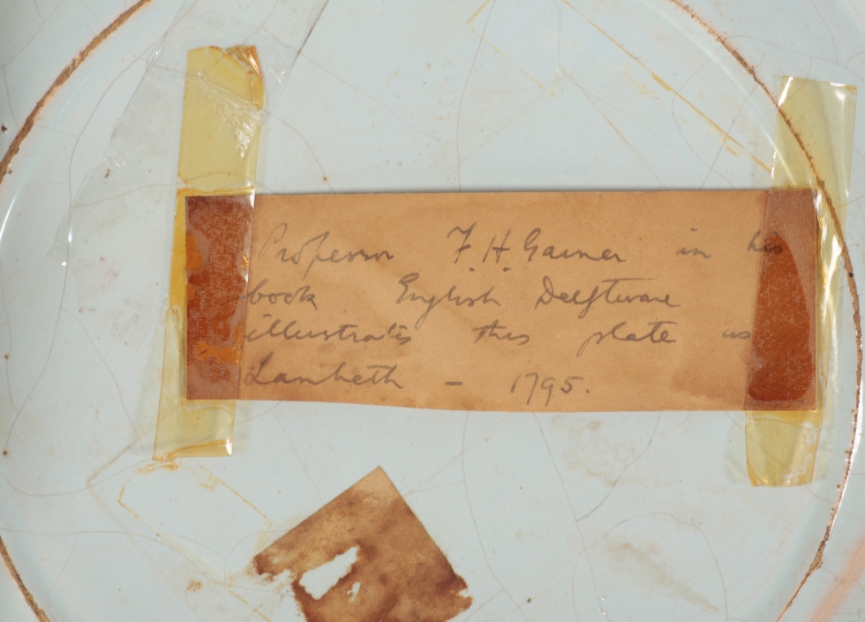 Professor F.H. Garner in his
book English Delftware
illustrates this plate as
Lambeth – 1795.